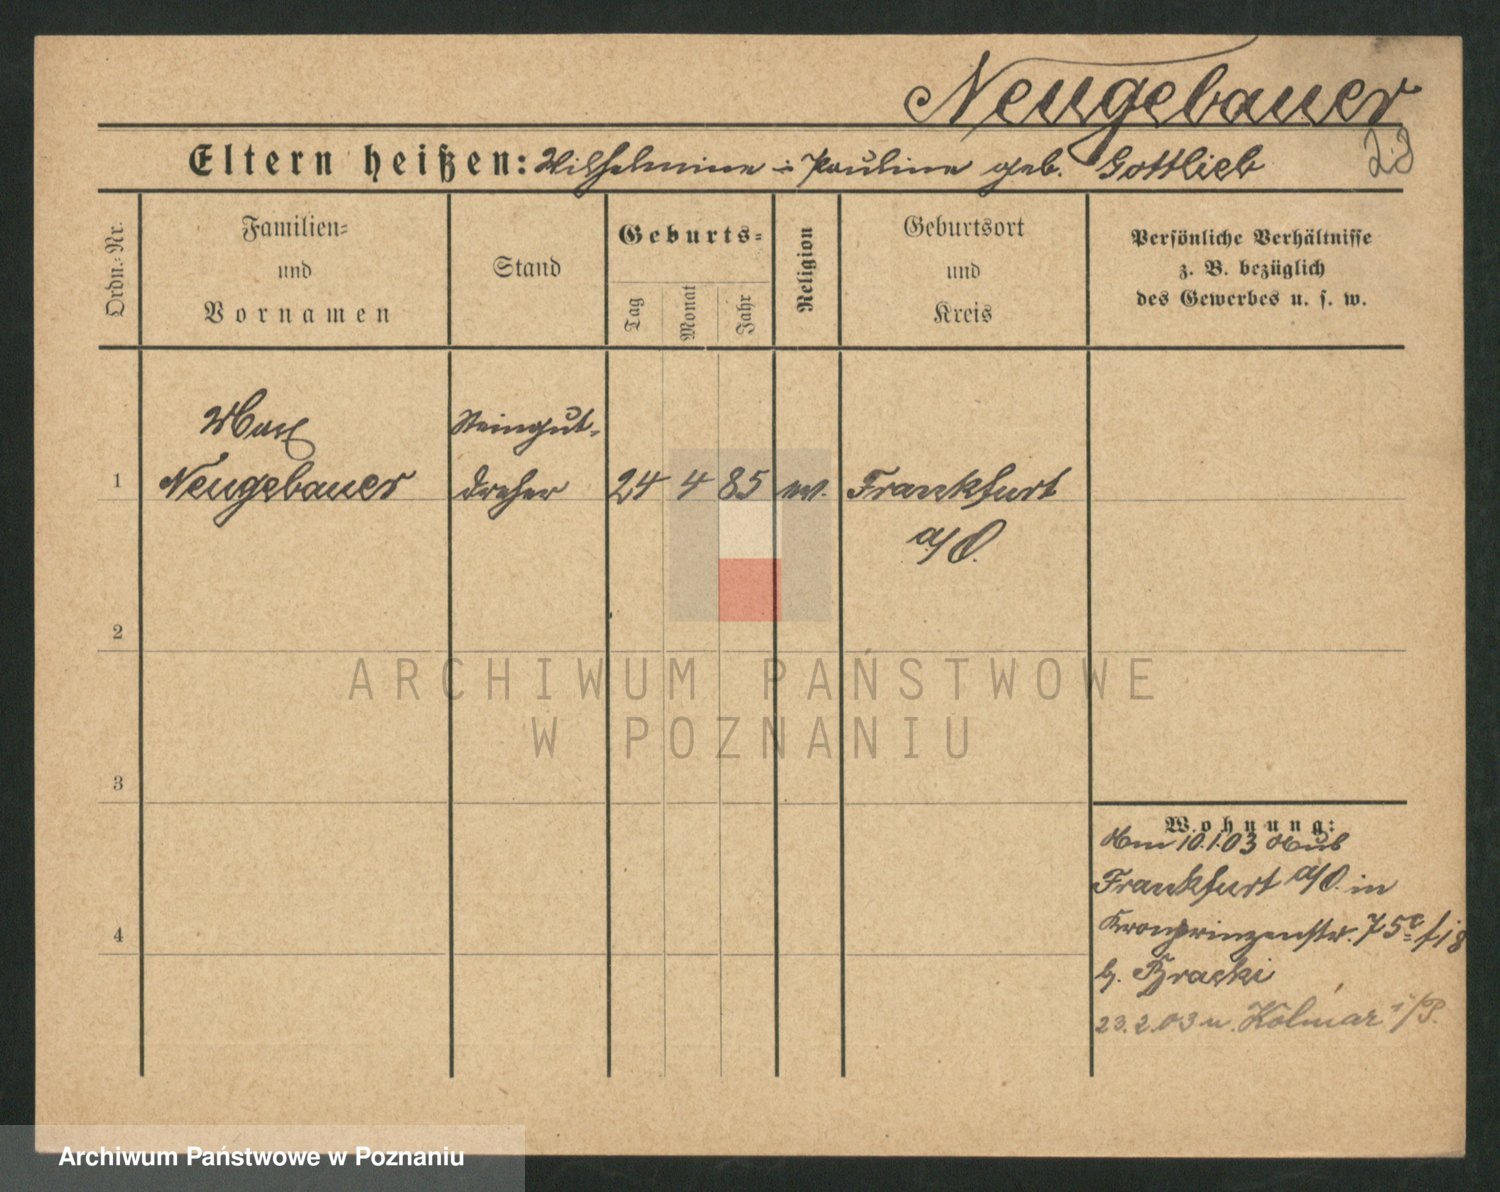 Neugebauer
23
Eltern heißen: Wilhelmine Pauline geb. Gottlieb
Ordn.-Nr.
Familien-
und
Vornamen
Stand
Geburts-
Tag
Monat
Jahr
Religion
Geburtsort
und
Kreis
Persönliche Verhältnisse
z. B. bezüglich
des Gewerbes u. s. w.
Max Steingut-
1 Neugebauer dreher 24 4 85 ev. Frankfurt
a/O.
2
3
4
Wohnung:
10.1.03
Frankfurt a/O. in
Kronprinzenstr. 75
b.
23.2.03 n. Kolmar i/P.
ARCHIWUM PAŃSTWOWE
W POZNANIU
Archiwum Państwowe w Poznaniu